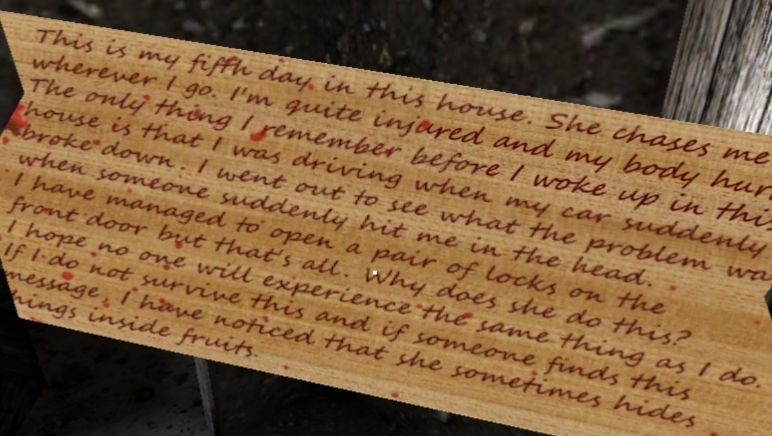 This is my fifth day in this house. She chases me
wherever I go. I'm quite injured and my body hur
The only thing I remember before I woke up in this
house is that I was driving when my car suddenly
broke down. I went out to see what the problem wa
when someone suddenly hit me in the head.
I have managed to open a pair of locks on the
front door but that's all. Why does she do this?
I hope no one will experience the same thing as I do.
If I do not survive this and if someone finds this
message, I have noticed that she sometimes hides
hings inside fruits.